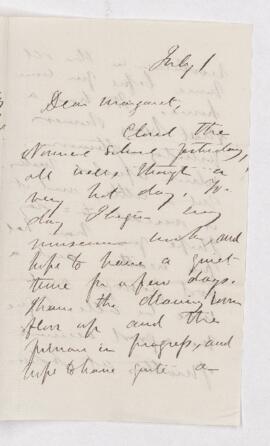 July 1
Dear Margaret,
Closed the
Normal School yesterday,
all well, though a
very hot day. To-
day I begin my
museum work, and
hope to have a quiet
time for a few days.
I have the drawing room
floor up and the
in progress, and
hope to have quite a